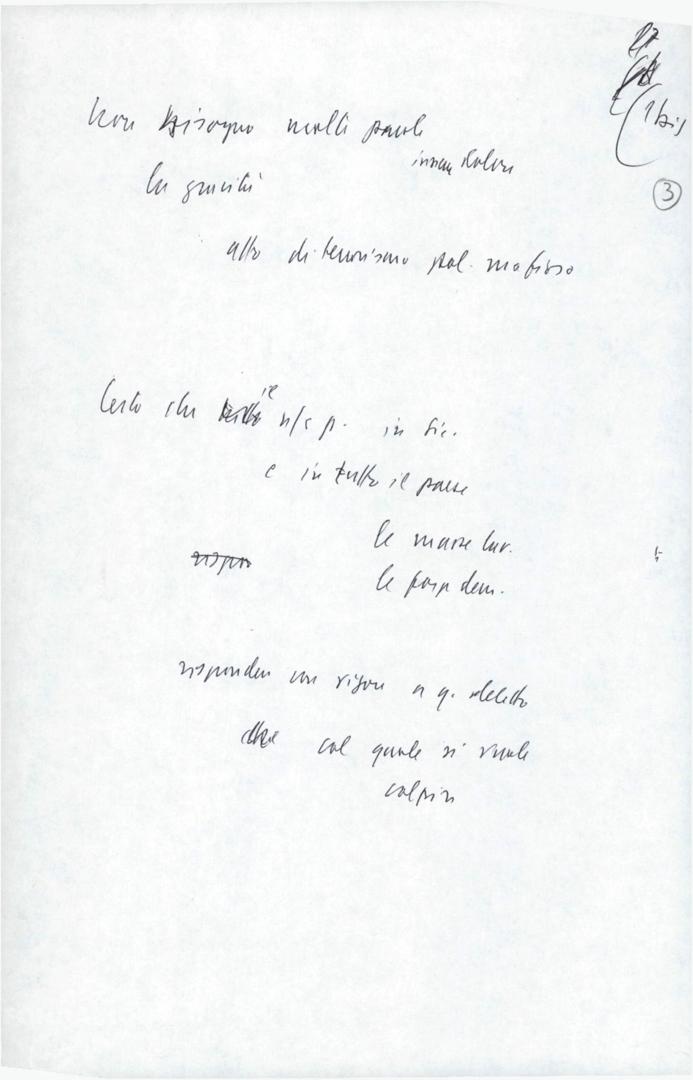 (1 bis
3
Non bisogno molte parole
la gravità
atto di terrorismo pol. mafioso
Certo che il n/s p. in Sic.
e in tutto il paese
le masse lav.
le pop. dem.
risponden con rigore a q. delitto
col quale si vuole
colpire